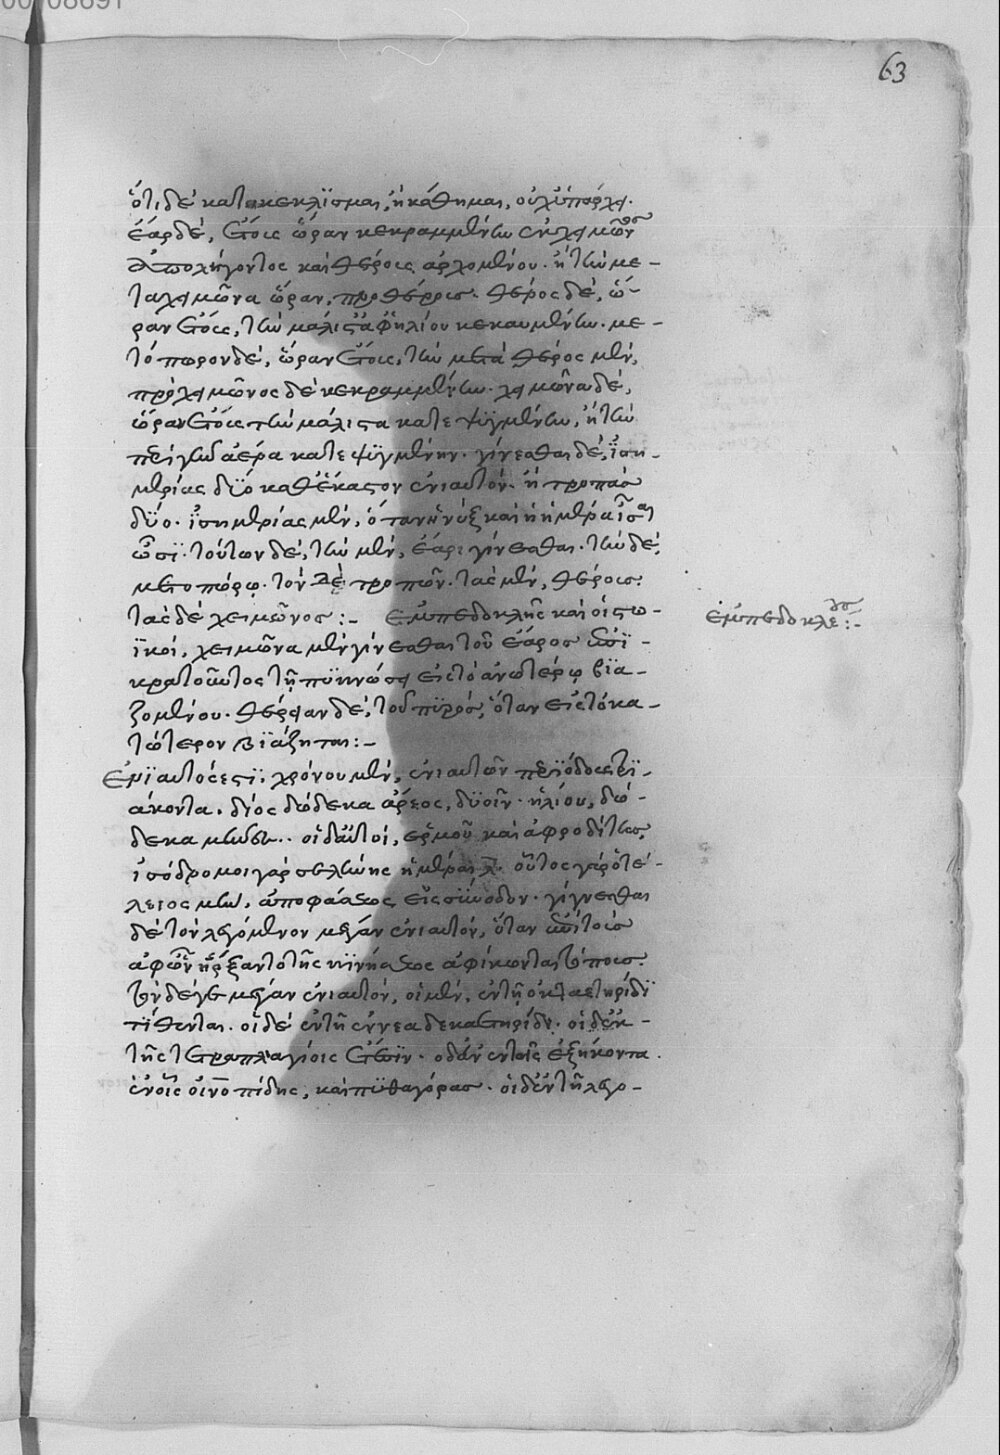 63
ὅτι δὲ κατακεκλϊσμαι, ἢ κάθημαι, οὐχ ὑπάρχει.
ἔαρ δέ, ἔτους ὥραν κεκραμμένην ἐκ χειμῶνος
ἀπολήγοντος καὶ θέρους ἀρχομένου. ἢ τὴν με-
τὰ χειμῶνα ὥραν, πρὸ θέρους. θέρος δέ, ὥ-
ραν ἔτους, τὴν μάλιστα ὑφ' ἡλίου κεκαυμένην. με-
τόπωρον δέ, ὥραν ἔτους, τὴν μετὰ θέρος μέν,
πρὸ χειμῶνος δὲ κεκραμμένην. χειμῶνα δέ,
ὥραν ἔτους τὴν μάλιστα κατεψϋγμένην, ἢ τὴν
περὶ γῆν ἀέρα κατεψϋγμένην. γίνεσθαι δέ, ἰση-
μερίας δύο καθ' ἕκαστον ἐνιαυτόν. ἢ τροπὰς
δύο. ἰσημερίας μέν, ὅταν ἡ νὺξ καὶ ἡ ἡμέρα ἴσαι
ὦσϊ. τούτων δέ, τὴν μέν, ἔαρι γίνεσθαι. τὴν δέ,
μετοπώρῳ. τῶν δὲ τροπῶν. τὰς μέν, θέρους
τὰς δὲ χειμῶνος:- Ἐμπεδοκλῆς καὶ οἱ στω-
ϊκοί, χειμῶνα μὲν γίνεσθαι τοῦ ἀέρος ἐπϊ-
κρατοῦντος τῇ πυκνώσει εἰς τὸ ἀνωτέρω βϊα-
ζομένου. θέρειαν δέ, τοῦ πϋρός, ὅταν εἰς τὸ κα-
τώτερον βϊάζηται:-
ἐμπεδοκλέους:-
Ἐνϊαυτός ἐστϊ, χρόνου μέν, ἐνιαυτῶν περϊόδους τρϊ-
άκοντα. διὸς δώδεκα ἄρεος, δϋοῖν. ἡλίου, δώ-
δεκα μῆνες. οἱ δ' αὐτοί, ἑρμοῦ καὶ ἀφροδίτης
ἰσόδρομοι γάρ σελήνης ἡμέραι λ. οὗτος γὰρ ὁ τέ-
λειος μήν, ἀπὸ φάσεως εἰς σύνοδον. γίγνεσθαι
δὲ τὸν λεγόμενον μέγαν ἐνιαυτόν, ὅταν ἐπὶ τοὺς
ἀφ' ὧν ἤρξαντο τῆς κϊνήσεως ἀφίκωνται τόπους.
τὸν δέ γε μέγαν ἐνιαυτόν, οἱ μέν, ἐν τῇ ὀκταετηρίδϊ
τϊθενται. οἱ δὲ ἐν τῇ ἐννεαδεκαετηρίδι. οἱ δ' ἐν
τοῖς ἑξήκοντα.
ἐν οἷς οἰνοπίδης, καὶ πϋθαγόρας. οἱ δ' ἐν τῇ λεγο-